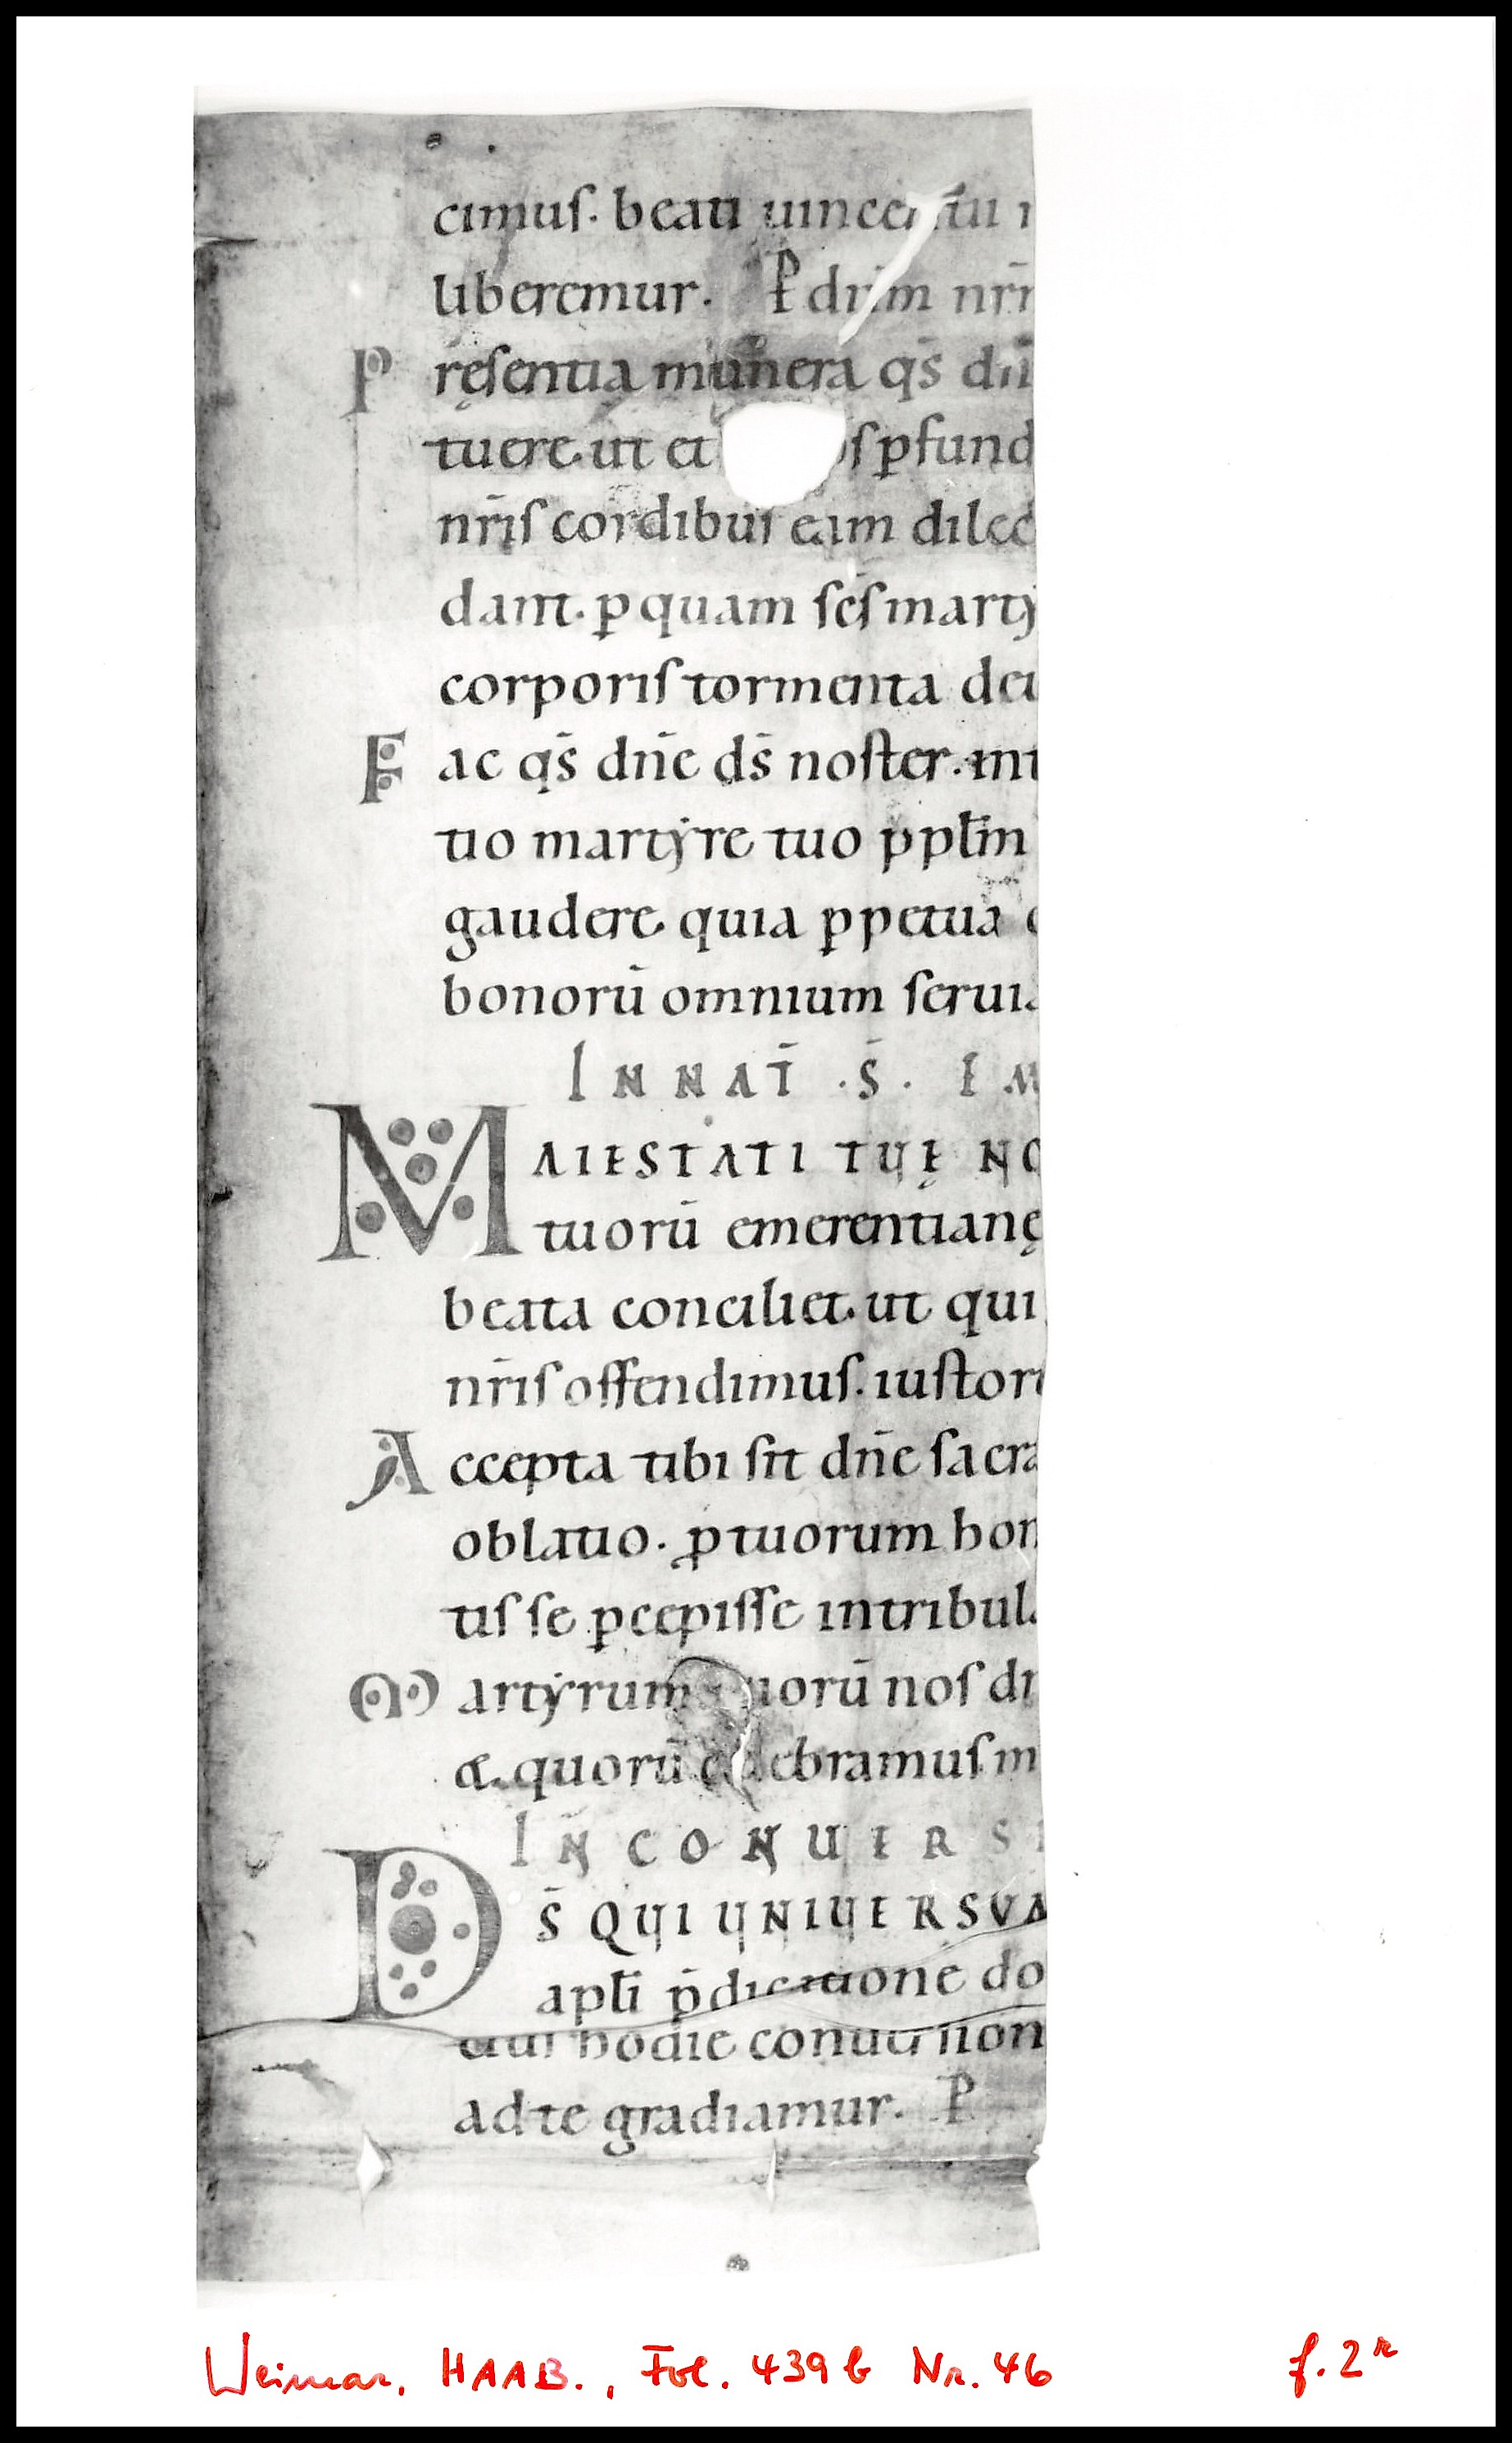 cimus. beati uincentii i
liberemur. P dn̄m nr̄ı
Pręsentia munera qs̄ dn̄
tuere. ut et os ꝑfund
nr̄is cordibus eam dilec
dam. ꝑ quam sc̄s marty
corporis tormenta deu
Fac qs̄ dn̄e ds̄ noster. int
tio martyre tuo ꝓ pl̄m
gaudere. quia ꝑpetua
bonorū omnium serui
IN NAT̄ .S̄. EM
MAIESTATI TUĘ NO
tuorū emerentianę
beata conciliet. ut qui
nr̄is offendimus. iustor
Accepta tibi sit dn̄e sacra
oblatio. ꝓ tuorum hon
tis se ꝑcepisse in tribula
Martyrum tuorū nos dn
æ. quorū celebramus m
IN CONUERS
DS̄ QUI UNIUERSUM
apl̄i p̄dicatione do
eius hodie conuersion
ad te gradiamur. P
Weimar, HAAB., Fol. 439b Nr. 46 f. 2r